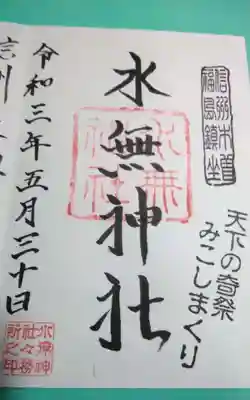 信州木曽
福島鎮座
天下の奇祭
みこしまくり
水無神社
水無
神社
令和三年五月三十日
水無神
社々務
所之印